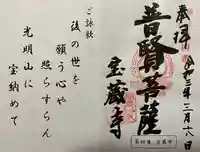 奉拝
令和三年二月十六日
普賢菩薩
宝蔵寺
ご詠歌
後の世を
願う心や
照らすらん
光明山に
宝納めて